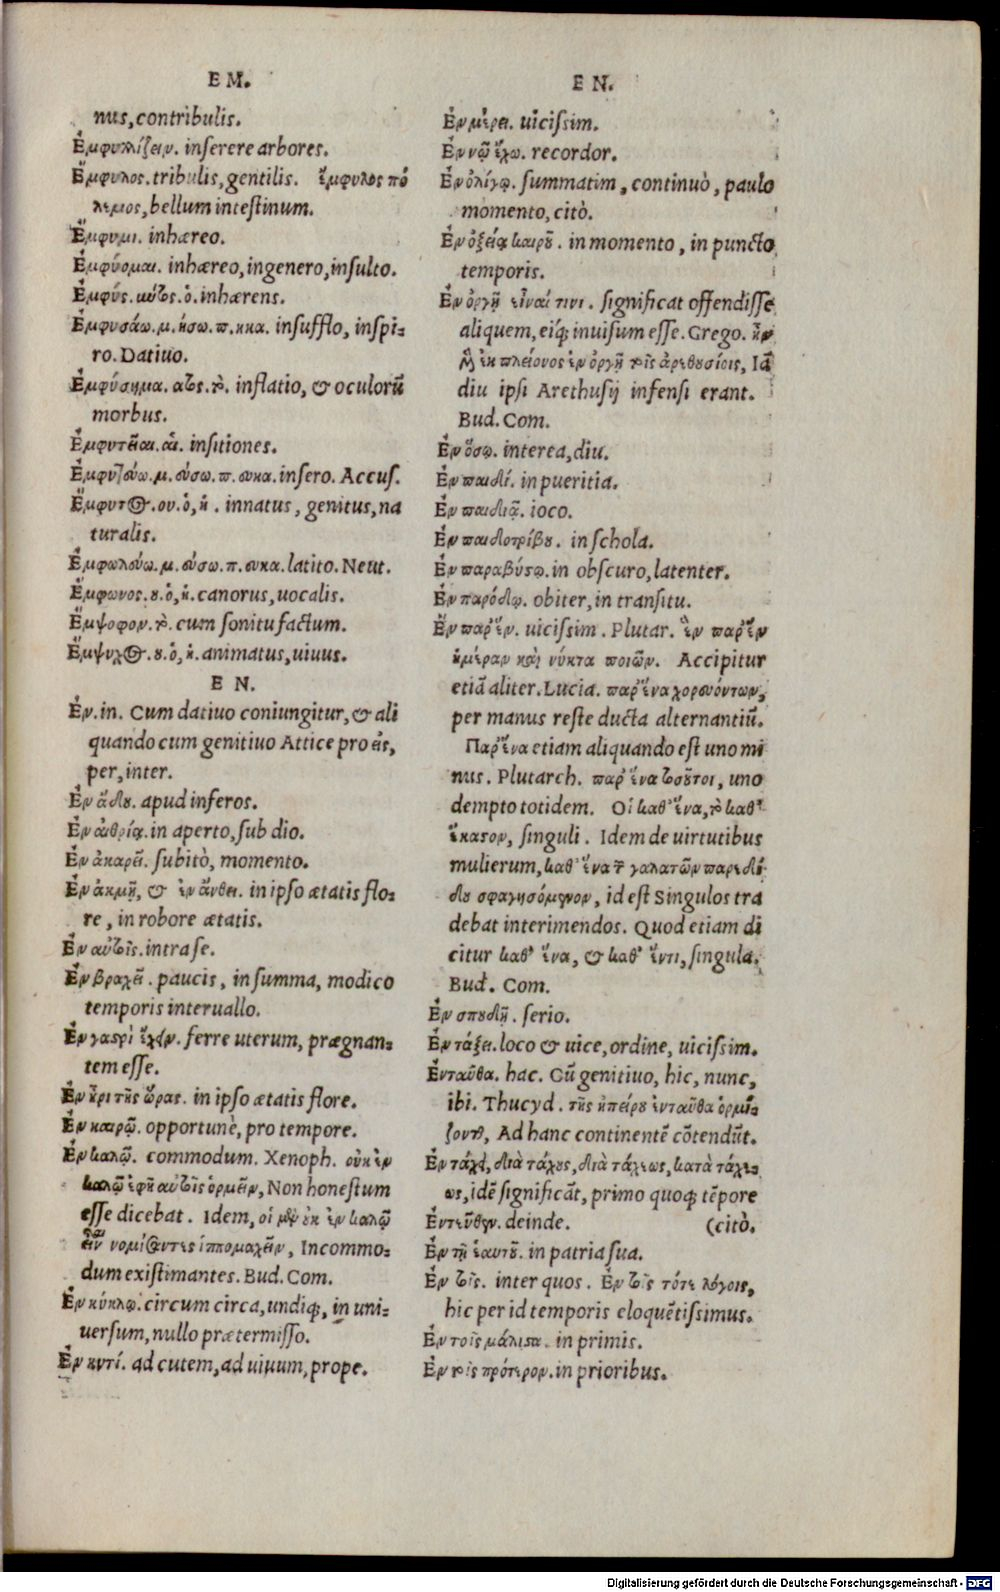 EM.
nus, contribulis.
Ἐμφυλλίζειν. inserere arbores.
Ἔμφυλος. tribulis, gentilis. ἔμφυλος πό
λεμος, bellum intestinum.
Ἔμφυμι. inhæreo.
Ἐμφύομαι. inhæreo, ingenero, insulto.
Ἐμφύς. ύντος. ὁ. inhærens.
Ἐμφυσάω. μ. ήσω. π. ηκα. insufflo, inspi-
ro. Datiuo.
Ἐμφύσημα. ατος. τὸ. inflatio, & oculorũ
morbus.
Ἐμφυτεῖαι. αἱ. insitiones.
Ἐμφυτεύω. μ. εύσω. π. ευκα. insero. Accus.
Ἔμφυτος. ου. ὁ, ἡ. innatus, genitus, na
turalis.
Ἐμφωλεύω. μ. εύσω. π. ευκα. latito. Neut.
Ἔμφωνος. ου. ὁ, ἡ. canorus, uocalis.
Ἔμψοφον. τὸ. cum sonitu factum.
Ἔμψυχος. ου. ὁ, ἡ. animatus, uiuus.
EN.
Ἐν. in. Cum datiuo coniungitur, & ali
quando cum genitiuo Attice pro εἰς,
per, inter.
Ἐν ᾅδου. apud inferos.
Ἐν αἰθρίᾳ. in aperto, sub dio.
Ἐν ἀκαρεῖ. subitò, momento.
Ἐν ἀκμῇ, & ἐν ἄνθει. in ipso ætatis flo-
re, in robore ætatis.
Ἐν αὐτοῖς. intra se.
Ἐν βραχεῖ. paucis, in summa, modico
temporis interuallo.
Ἐν γαστρὶ ἔχειν. ferre uterum, prægnan-
tem esse.
Ἐν ἦρι τῆς ὥρας. in ipso ætatis flore.
Ἐν καιρῷ. opportunè, pro tempore.
Ἐν καλῷ. commodum. Xenoph. οὐκ ἐν
καλῷ ἔφη αὐτοῖς ὁρμεῖν, Non honestum
esse dicebat. Idem, οἱ μὲν οὐκ ἐν καλῷ
εἶν νομίσαντες ἱππομαχεῖν, Incommo-
dum existimantes. Bud. Com.
Ἐν κύκλῳ. circum circa, undiq;, in uni-
uersum, nullo prætermisso.
Ἐν χυτί. ad cutem, ad uiuum, prope.
EN.
Ἐν μέρει. uicissim.
Ἐν νῷ ἔχω. recordor.
Ἐν ὀλίγῳ. summatim, continuò, paulo
momento, citò.
Ἐν ὀξείᾳ καιροῦ. in momento, in puncto
temporis.
Ἐν ὀργῇ εἶναί τινι. significat offendisse
aliquem, eiq; inuisum esse. Grego. ἦν
δὴ ἐκ πλείονος ἐν ὀργῇ τοῖς ἀρεθουσίοις, Iã
diu ipsi Arethusij infensi erant.
Bud. Com.
Ἐν ὅσῳ. interea, diu.
Ἐν παιδί. in pueritia.
Ἐν παιδιᾷ. ioco.
Ἐν παιδοτρίβου. in schola.
Ἐν παραβύστῳ. in obscuro, latenter.
Ἐν παρόδῳ. obiter, in transitu.
Ἓν παρ' ἕν. uicissim. Plutar. ἓν παρ' ἓν
ἡμέραν καὶ νύκτα ποιῶν. Accipitur
etiã aliter. Lucia. παρ' ἕνα χορευόντων,
per manus reste ducta alternantiũ.
Παρ' ἕνα etiam aliquando est uno mi
nus. Plutarch. παρ' ἕνα τοσοῦτοι, uno
dempto totidem. Οἱ καθ' ἕνα, τὸ καθ'
ἕκαστον, singuli. Idem de uirtutibus
mulierum, καθ' ἕνα τῶν γαλατῶν παρεδί
δου σφαγησόμενον, id est Singulos tra
debat interimendos. Quod etiam di
citur καθ' ἕνα, & καθ' ἕντι, singula.
Bud. Com.
Ἐν σπουδῇ. serio.
Ἐν τάξει. loco & uice, ordine, uicissim.
Ἐνταῦθα. hac. Cũ genitiuo, hic, nunc,
ibi. Thucyd. τῆς ἠπείρου ἐνταῦθα ὁρμί-
ζονται, Ad hanc continentẽ cõtendũt.
Ἐν τάχει, διὰ τάχους, διὰ τάχεως, κατὰ τάχε-
ως, idẽ significãt, primo quoq; tẽpore
Ἐντεῦθεν. deinde. (citò.
Ἐν τῇ ἑαυτοῦ. in patria sua.
Ἐν τοῖς. inter quos. Ἐν τοῖς τότε λόγοις,
hic per id temporis eloquẽtissimus.
Ἐν τοῖς μάλιστα. in primis.
Ἐν τοῖς πρότερον. in prioribus.
Digitalisierung gefördert durch die Deutsche Forschungsgemeinschaft - DFG